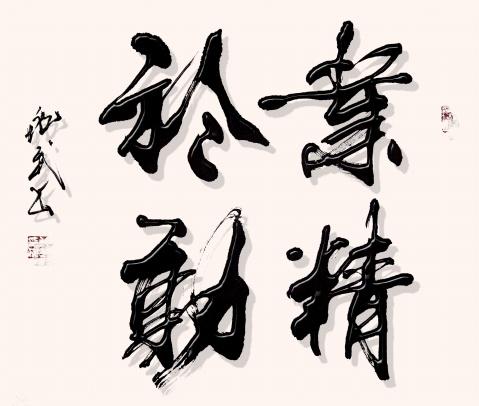 業精
於勤